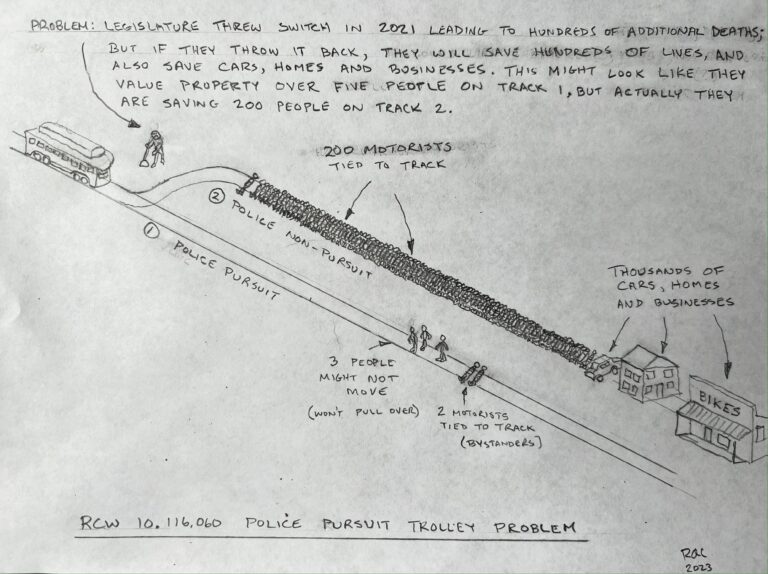 PROBLEM: LEGISLATURE THREW SWITCH IN 2021 LEADING TO HUNDREDS OF ADDITIONAL DEATHS;
BUT IF THEY THROW IT BACK, THEY WILL SAVE HUNDREDS OF LIVES, AND
ALSO SAVE CARS, HOMES AND BUSINESSES. THIS MIGHT LOOK LIKE THEY
VALUE PROPERTY OVER FIVE PEOPLE ON TRACK 1, BUT ACTUALLY THEY
ARE SAVING 200 PEOPLE ON TRACK 2.
200 MOTORISTS
TIED TO TRACK
2 POLICE NON-PURSUIT
1 POLICE PURSUIT
THOUSANDS OF
CARS, HOMES
AND BUSINESSES
BIKES
3 PEOPLE
MIGHT NOT
MOVE
(WON'T PULL OVER)
2 MOTORISTS
TIED TO TRACK
(BYSTANDERS)
RCW 10.116.060 POLICE PURSUIT TROLLEY PROBLEM
2023